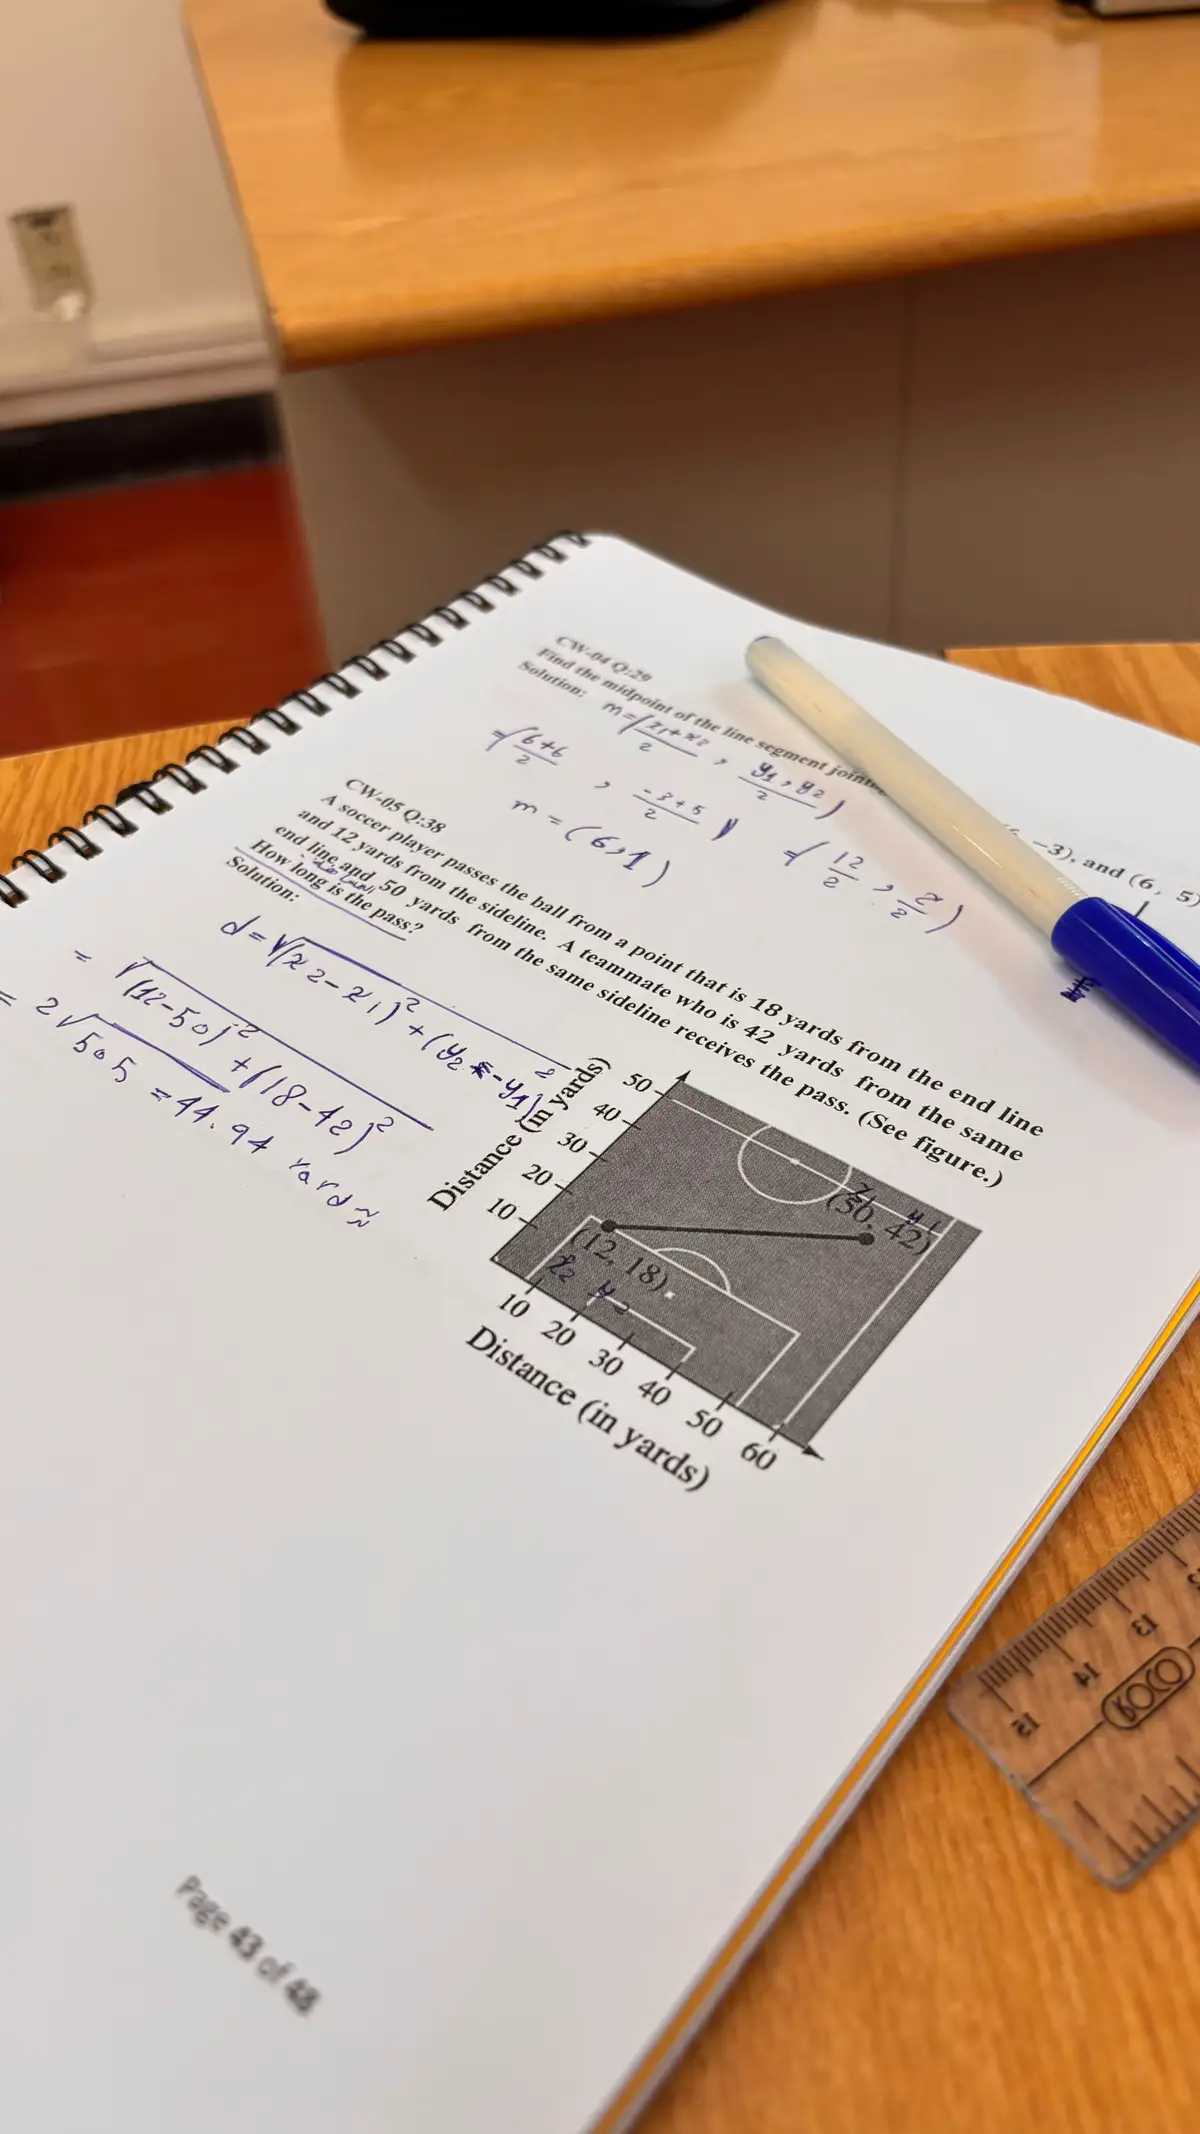 CW-04 Q:29
Find the midpoint of the line segment joining (6, -3), and (6, 5)
Solution: m=(x1+x2/2 , y1,y2/2)
=(6+6/2 , -3+5/2) =(12/2 , 2/2)
m=(6,1)
CW-05 Q:38
A soccer player passes the ball from a point that is 18 yards from the end line
and 12 yards from the sideline. A teammate who is 42 yards from the same
end line and 50 yards from the same sideline receives the pass. (See figure.)
How long is the pass?
Solution:
d=√(x2-x1)²+(y2-y1)²
=√(12-50)²+(18-42)²
=2√505 =44.94 Yards
Distance (in yards)
50
40
30
20
10
x1 y1
(50, 42)
(12, 18)
x2 y2
10 20 30 40 50 60
Distance (in yards)
Page 43 of 48
12
13
14
15
KOCO